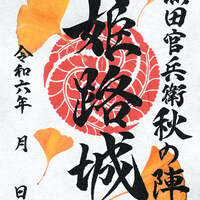 田官兵衛秋の陣
姫路城
令和六年　月　日